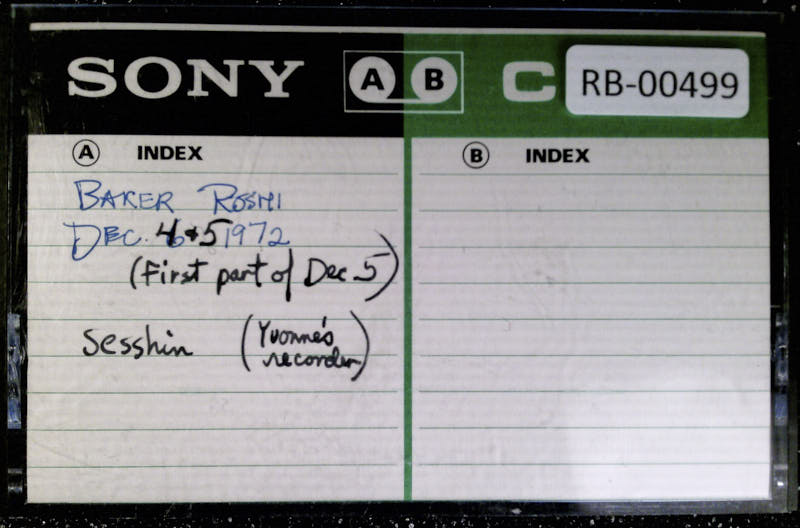 SONY A B C RB-00499
A INDEX
BAKER ROSHI
DEC. 4&5 1972
(First part of Dec 5)
Sesshin (Yvonne's
recorder)
B INDEX